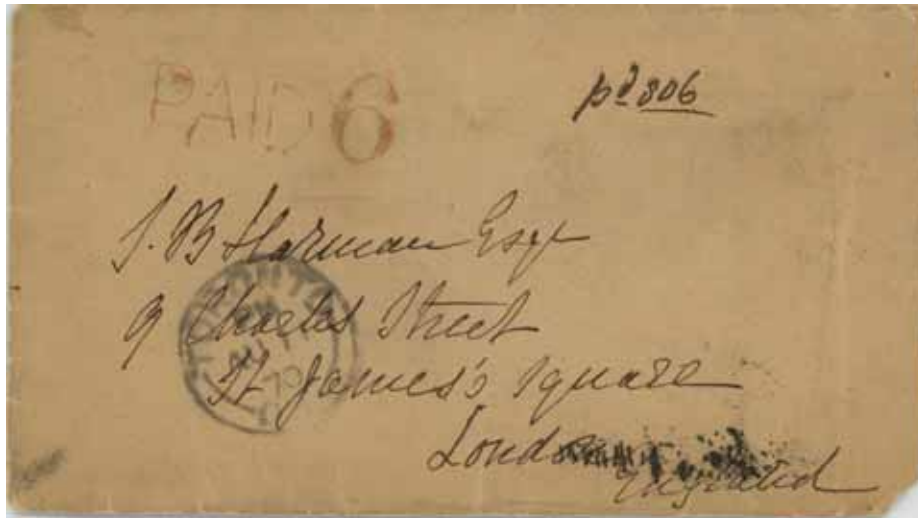 PAID 6
pd 806
S. B Harman Esqr
9 Charles Street
St James's Square
London
England
TORONTO